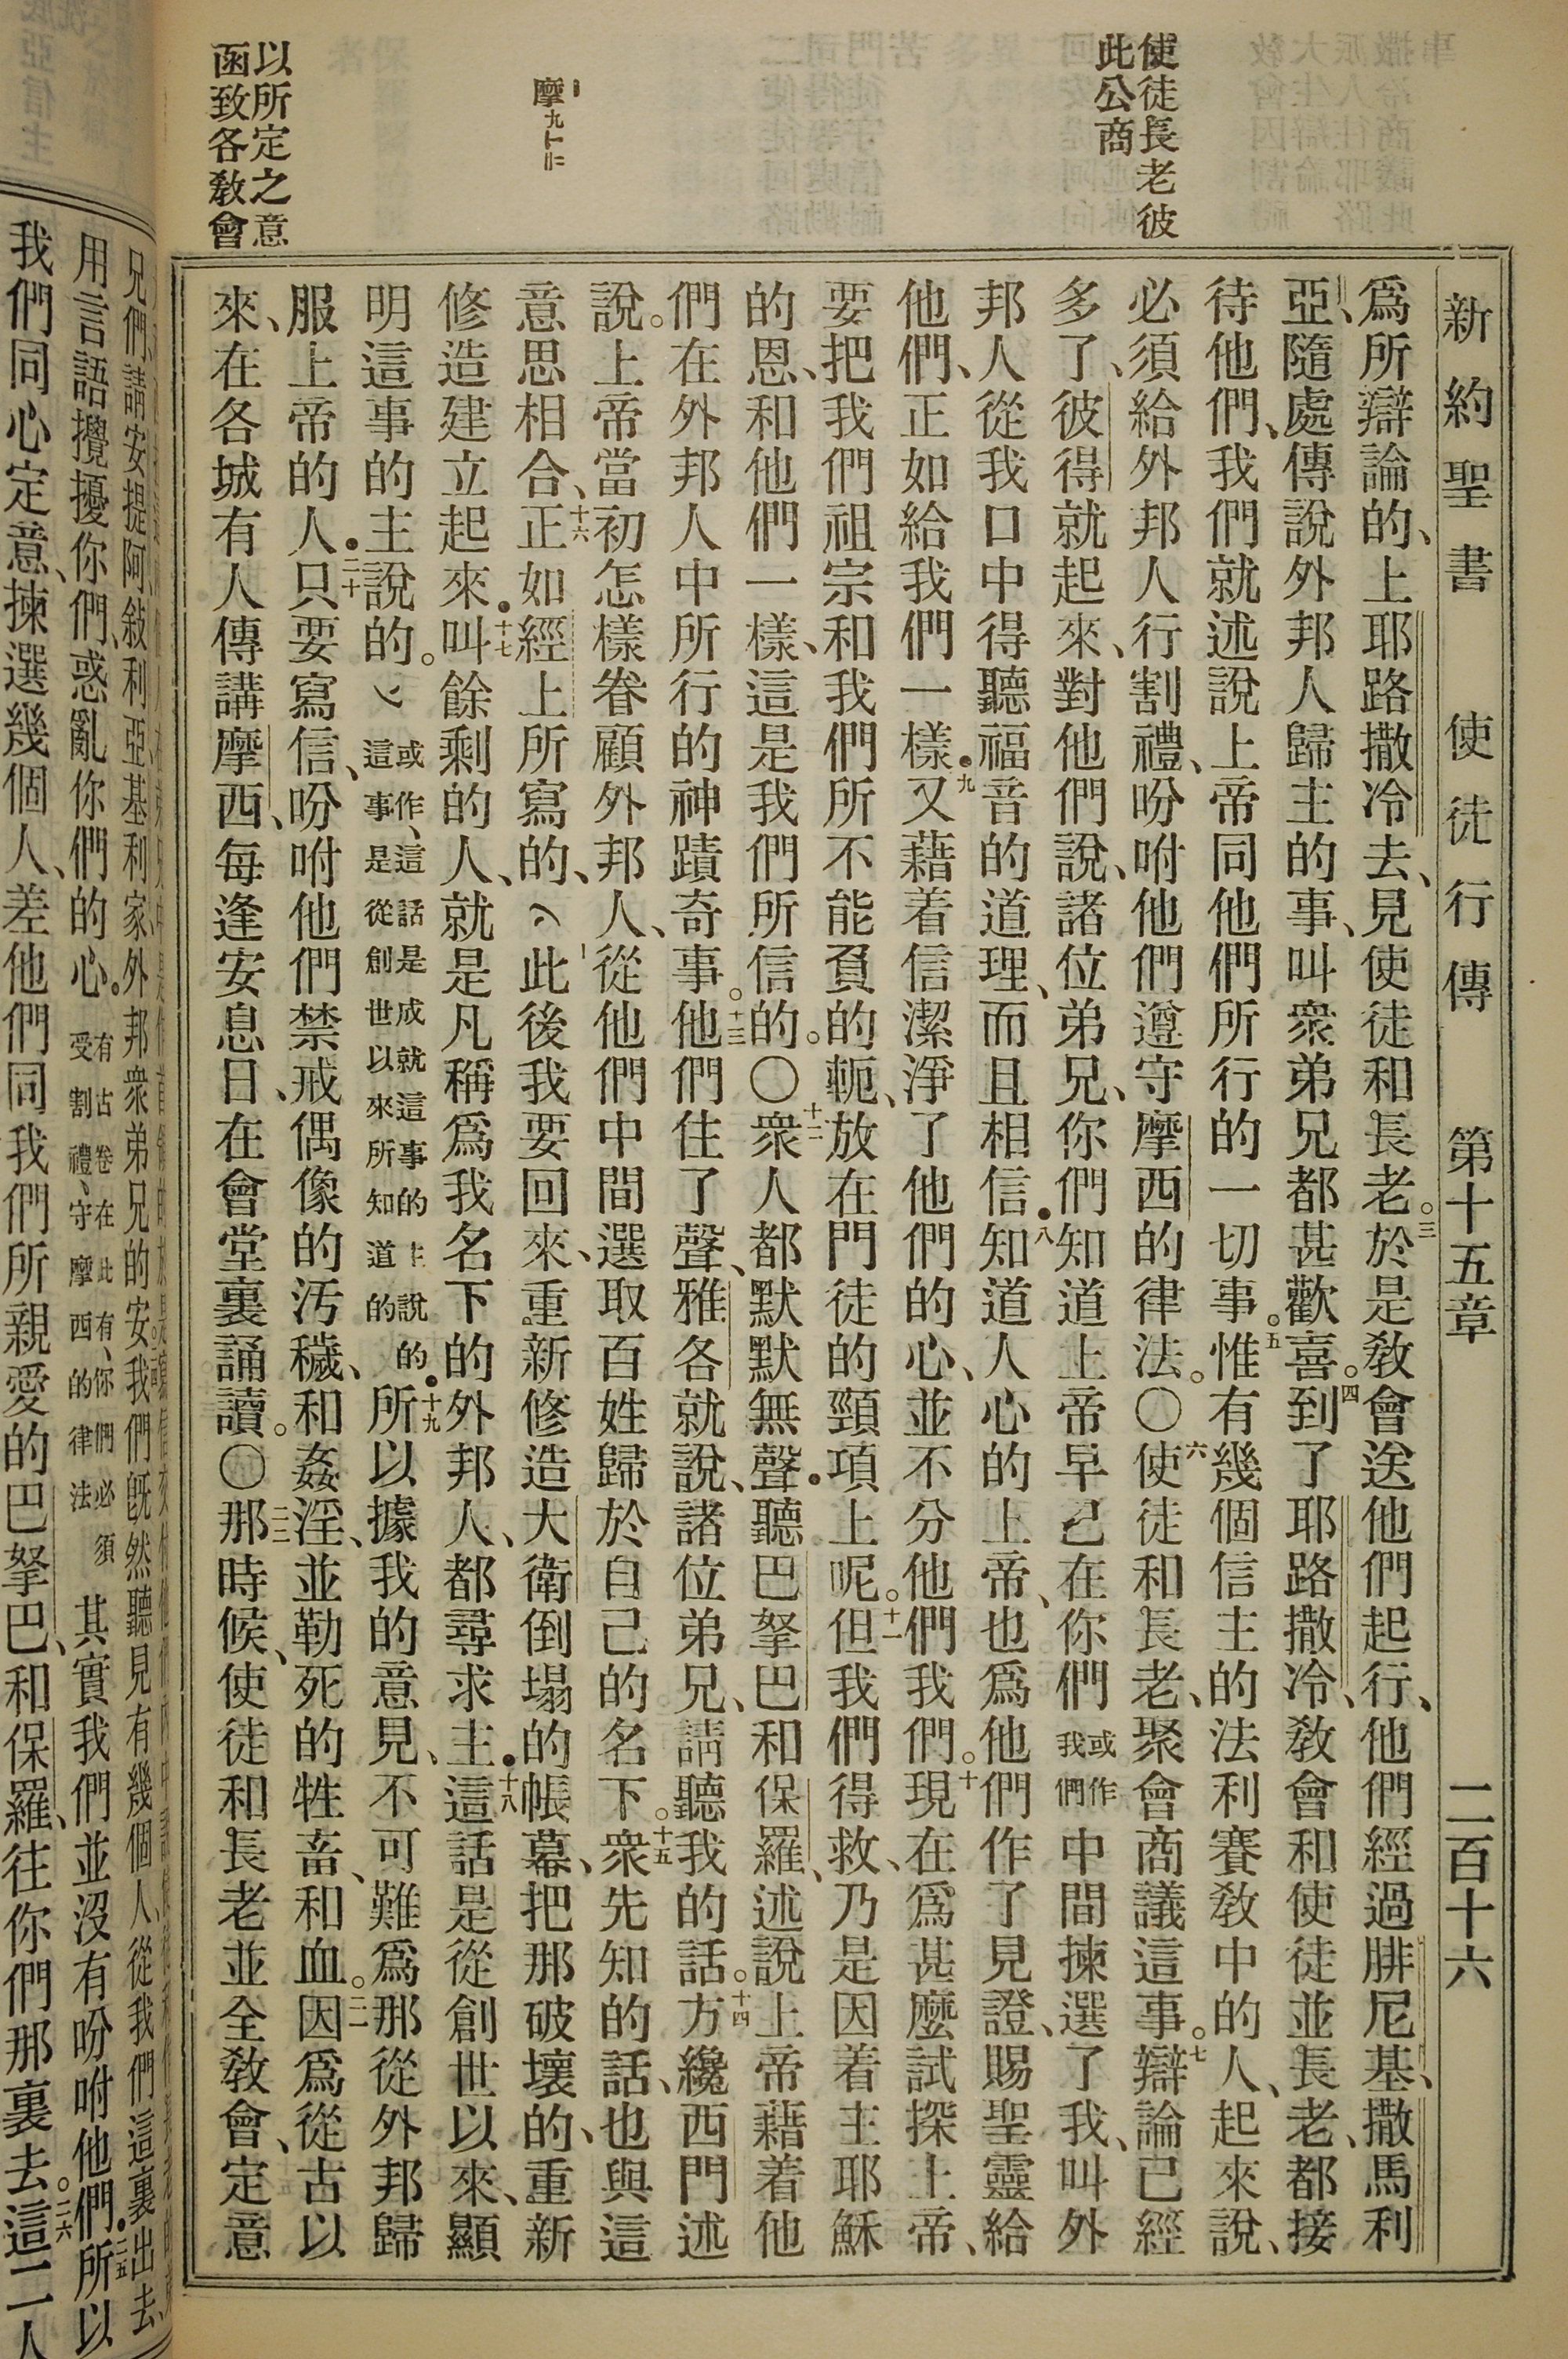 新約聖書 使徒行傳 第十五章 二百十六
使徒長老彼
此公商
摩九十二
以所定之意
函致各敎會
爲所辯論的、上耶路撒冷去、見使徒和長老。三於是敎會送他們起行、他們經過腓尼基、撒馬利
亞、隨處傳說外邦人歸主的事、叫衆弟兄都甚歡喜。四到了耶路撒冷、敎會和使徒並長老、都接
待他們、我們就述說上帝同他們所行的一切事。五惟有幾個信主的法利賽敎中的人、起來說、
必須給外邦人行割禮、吩咐他們遵守摩西的律法。〇六使徒和長老、聚會商議這事。七辯論已經
多了、彼得就起來、對他們說、諸位弟兄、你們知道上帝早已在你們或作我們中間揀選了我、叫外
邦人從我口中得聽福音的道理、而且相信●八知道人心的上帝、也爲他們作了見證、賜聖靈給
他們、正如給我們一樣●九又藉着信潔淨了他們的心、並不分他們我們。十現在爲甚麼試探上帝、
要把我們祖宗和我們所不能負的軛、放在門徒的頸項上呢。十一但我們得救、乃是因着主耶穌
的恩、和他們一樣、這是我們所信的。〇十二衆人都默默無聲●聽巴拏巴和保羅、述說上帝藉着他
們在外邦人中所行的神蹟奇事。十三他們住了聲、雅各就說、諸位弟兄、請聽我的話。十四方纔西門述
說。上帝當初怎樣眷顧外邦人、從他們中間選取百姓歸於自己的名下。十五衆先知的話、也與這
意思相合、十六正如經上所寫的、此後我要回來、重新修造大衛倒塌的帳幕、把那破壞的、重新
修造建立起來●十七叫餘剩的人、就是凡稱爲我名下的外邦人、都尋求主●十八這話是從創世以來、顯
明這事的主說的。或作、這話是成就這事的主說的這事是從創世以來所知道的●十九所以據我的意見、不可難爲那從外邦歸
服上帝的人●二十只要寫信、吩咐他們禁戒偶像的汚穢、和姦淫、並勒死的牲畜、和血。二一因爲從古以
來、在各城有人傳講摩西、每逢安息日、在會堂裏誦讀。〇二二那時候、使徒和長老並全敎會、定意
兄們、請安提阿、敍利亞、基利家、外邦衆弟兄的安。我們旣然聽見有幾個人、從我們這裏出去、
用言語攪擾你們、惑亂你們的心●有古卷在此有、你們必須受割禮、守摩西的律法其實我們並沒有吩咐他們●二五所以
我們同心定意、揀選幾個人、差他們同我們所親愛的巴拏巴、和保羅、往你們那裏去。二六這二人